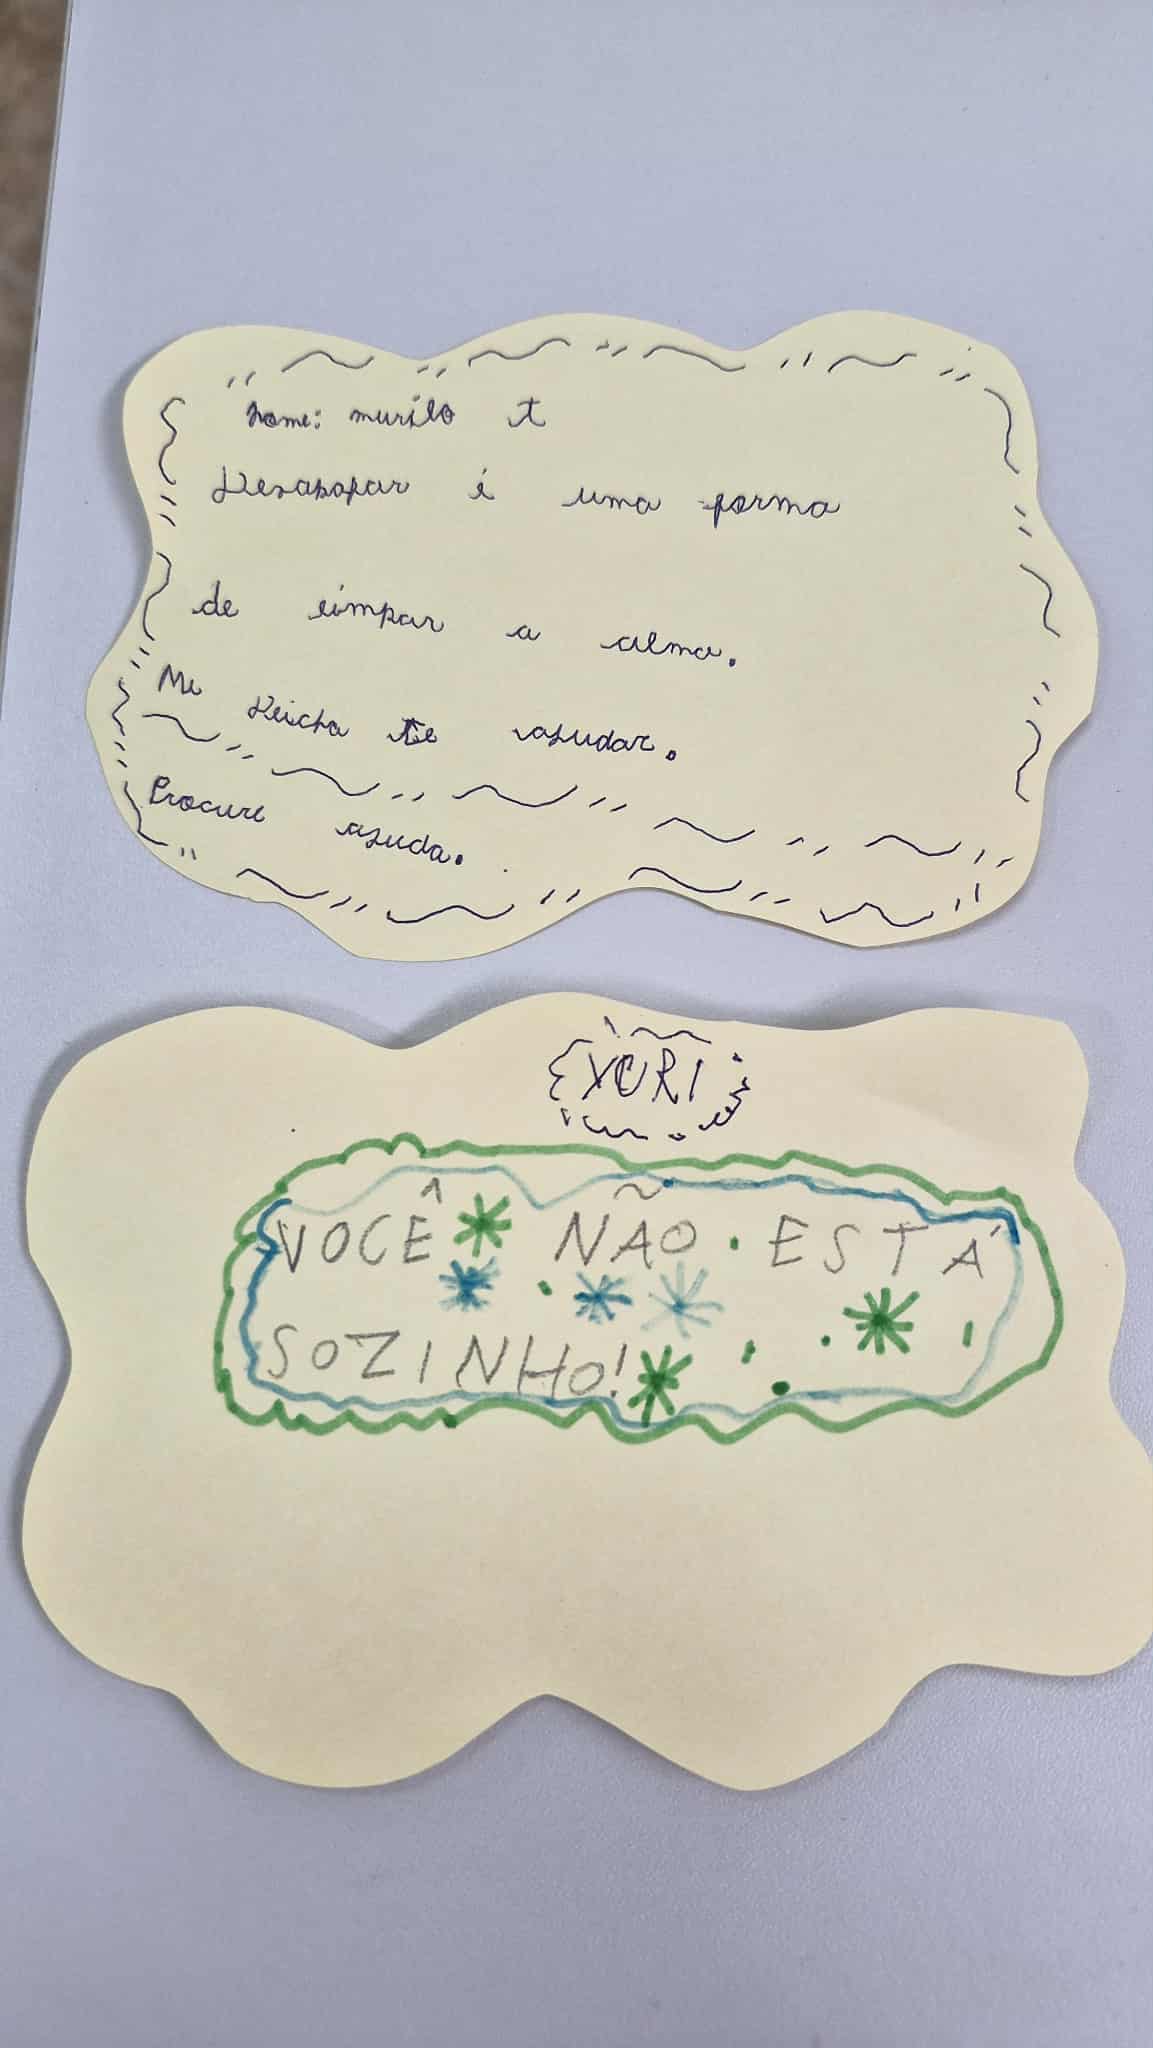 nome: murilo t
Desabafar é uma forma
de limpar a alma.
Me deicha te ajudar.
Procure ajuda.
YURI
VOCÊ NÃO ESTÁ
SOZINHO!